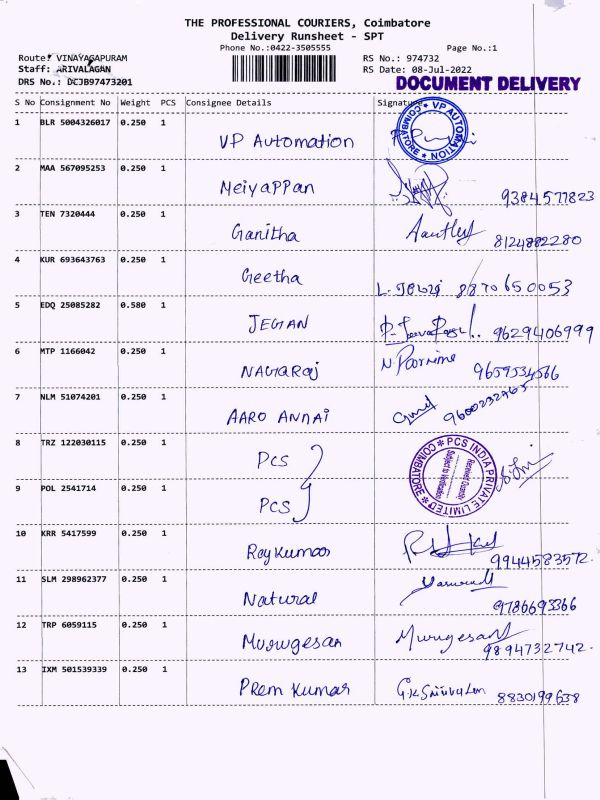 THE PROFESSIONAL COURIERS, Coimbatore
Delivery Runsheet - SPT
Phone No.:0422-3505555 Page No.:1
Route: VINAYAGAPURAM RS No.: 974732
Staff: ARIVALAGAN RS Date: 08-Jul-2022
DRS No.: DCJB97473201 DOCUMENT DELIVERY
S No Consignment No Weight PCS Consignee Details Signature
1 BLR 5004326017 0.250 1 VP Automation
VP AUTOMATION COIMBATORE
2 MAA 567095253 0.250 1 Meiyappan 9384577823
3 TEN 7320444 0.250 1 Ganitha 8124882280
4 KUR 693643763 0.250 1 Geetha 8870650053
5 EDQ 25085282 0.580 1 JEGAN 9629406999
6 MTP 1166042 0.250 1 NAGARaj 9659534566
7 NLM 51074201 0.250 1 AARO ANNAI 9600232965
8 TRZ 122030115 0.250 1 PCS
PCS INDIA PRIVATE LIMITED COIMBATORE
Received Quantity
Subject to Verification
9 POL 2541714 0.250 1 PCS
10 KRR 5417599 0.250 1 Raykumar 9944583572.
11 SLM 298962377 0.250 1 Natural 9786693366
12 TRP 6059115 0.250 1 Murugesan Murugesan 9894732742.
13 IXM 501539339 0.250 1 Prem Kumar 8830199638